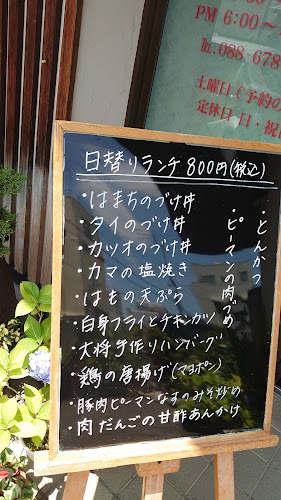 PM 6:00～
℡.088-678
土曜日(予約の
定休日 日・祝
日替りランチ 800円(税込)
・はまちのづけ丼
・タイのづけ丼
・カツオのづけ丼
・カマの塩焼き
・はもの天ぷら
・白身フライとチキンカツ
・大将手作りハンバーグ
・鶏の唐揚げ(マヨポン)
・豚肉ピーマンなすのみそ炒め
・肉だんごの甘酢あんかけ
・とんかつ
・ピーマンの肉づめ